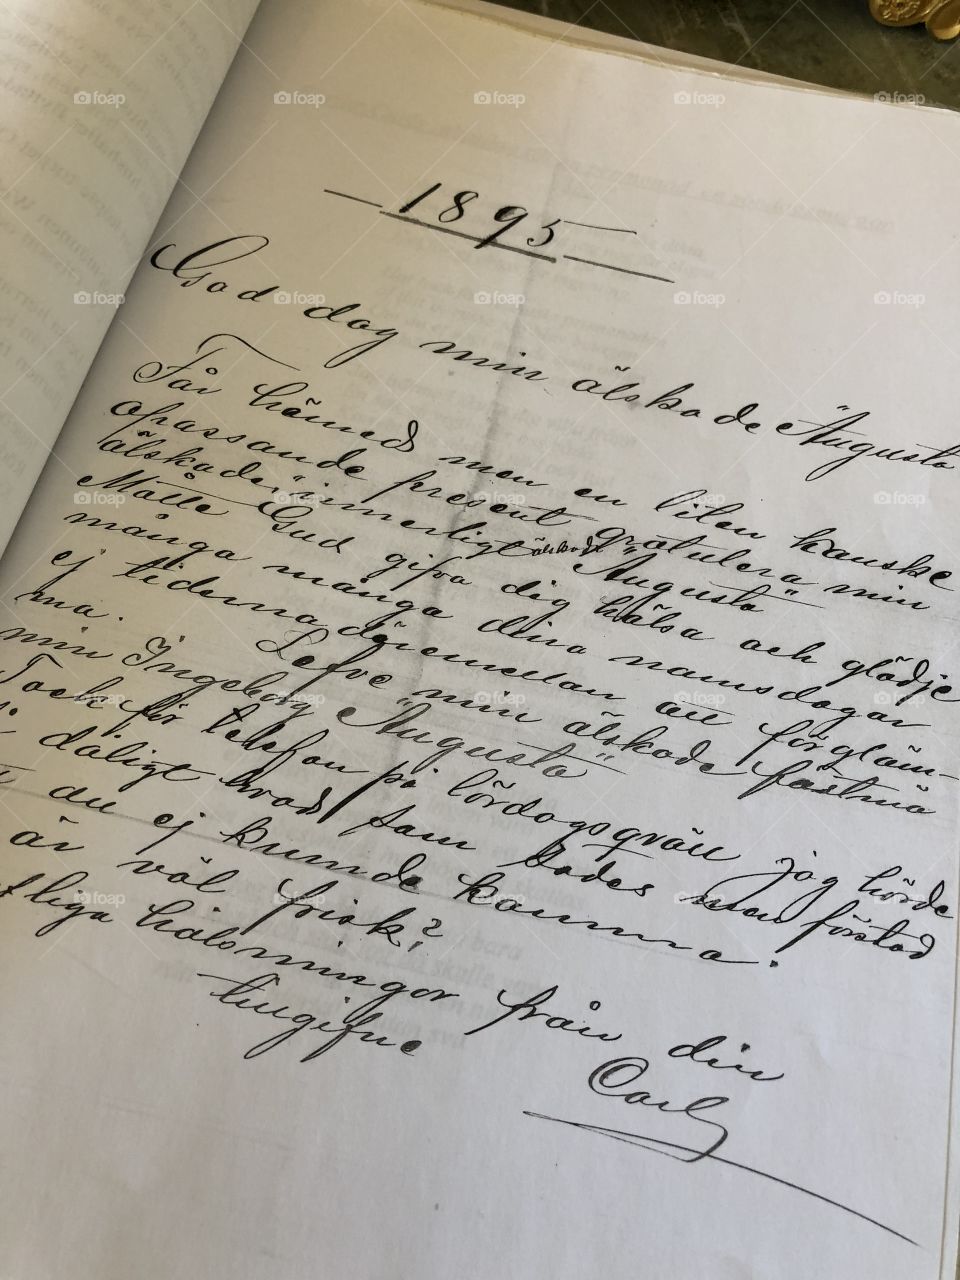 1895
God dag min älskade "Augusta
Får härmed men en liten kanske
opassande present gratulera min
älskade innerligt älskade "Augusta"
Måtte Gud gifva dig hälsa och glädje
många många dina namsdagar
ej tiderna däremellan att förgläm-
ma. Lefve min älskade fästmö
min Ingeborg "Augusta"
Tack för telefon på lördagsqväll jag hörde
dåligt hvad som sades men förstod
du ej kunde komma.
är väl frisk?
liga hälsningar från din
tillgifne
Carl